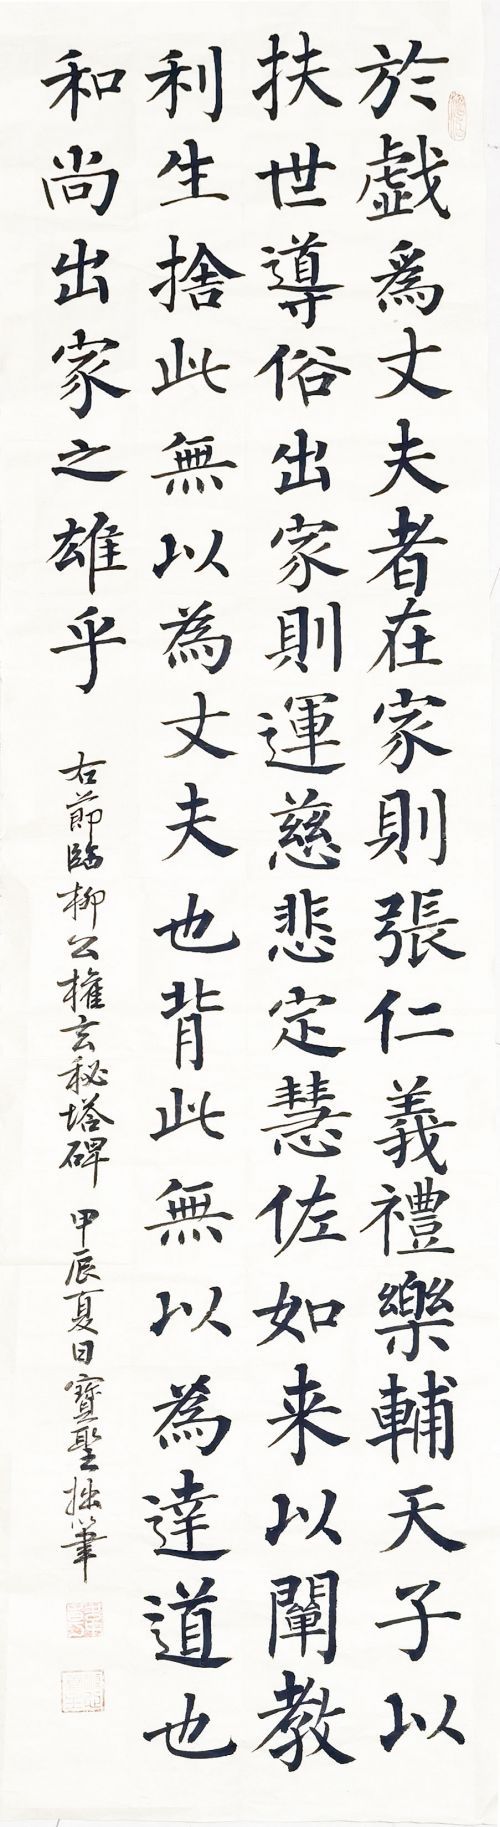 於戲爲丈夫者在家則張仁義禮樂輔天子以
扶世導俗出家則運慈悲定慧佐如来以闡教
利生捨此無以為丈夫也背此無以為達道也
和尚出家之雄乎
右節臨柳公權玄秘塔碑 甲辰夏日寶聖拙筆